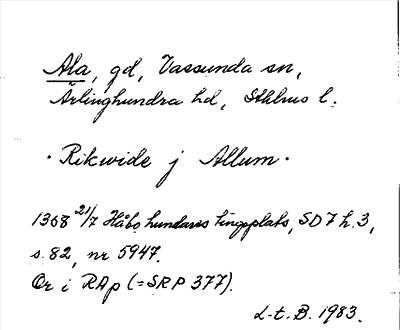 Ala, gd, Vassunda sn,
Ärlinghundra hd, Sthlms l.
· Rikwide j Allum ·
1368 21/7 Håbo hundares tingsplats, SD 7 h. 3,
s. 82, nr 5947.
Or i RAp (= SRP 377).
L-t. B. 1983.